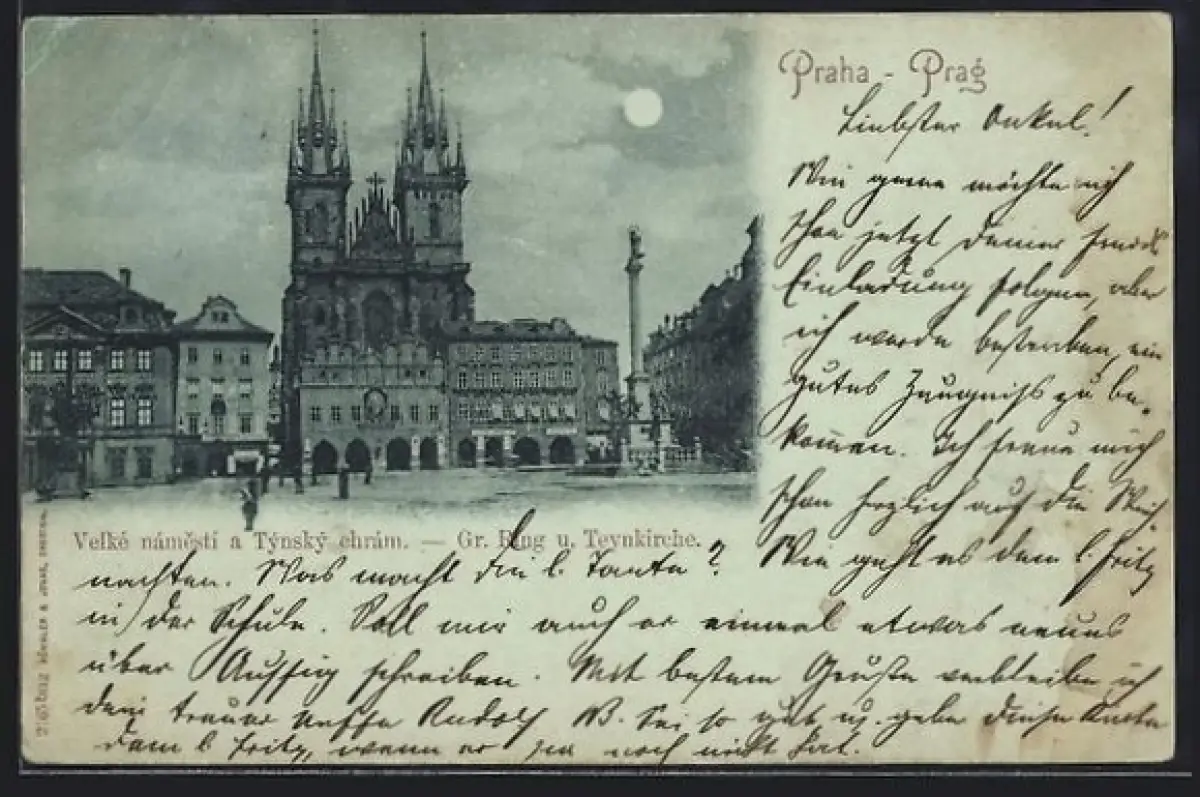 Praha - Prag
Liebster Onkel!
Wie gerne möchte ich
schon jetzt Deiner freundl.
Einladung folgen, aber
ich werde bestreben, ein
gutes Zeugniss zu be-
kommen. Ich freue mich
schon herzlich auf die Weih-
Velké náměstí a Týnský chrám. — Gr. Ring u. Teynkirche.
nachten. Was macht die l. Tante? Wie geht es dem l. Fritz
in der Schule. Soll mir auch er einmal etwas neues
über Aussig schreiben. Mit besten Grüße verbleibe ich
dein treuer Neffe Rudolf NB. Sei so gut u. gebe diese Karte
dem l. Fritz, wenn er sie noch nicht hat.